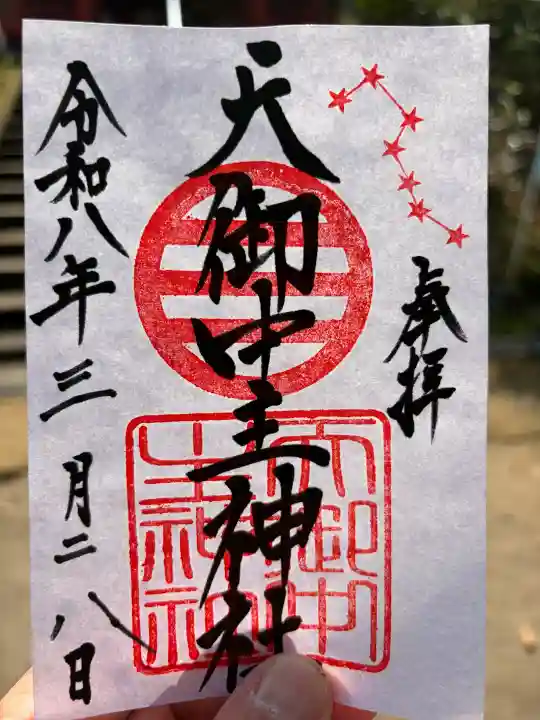 奉拝
天御中主神社
令和八年三月二八日
天御中主神社